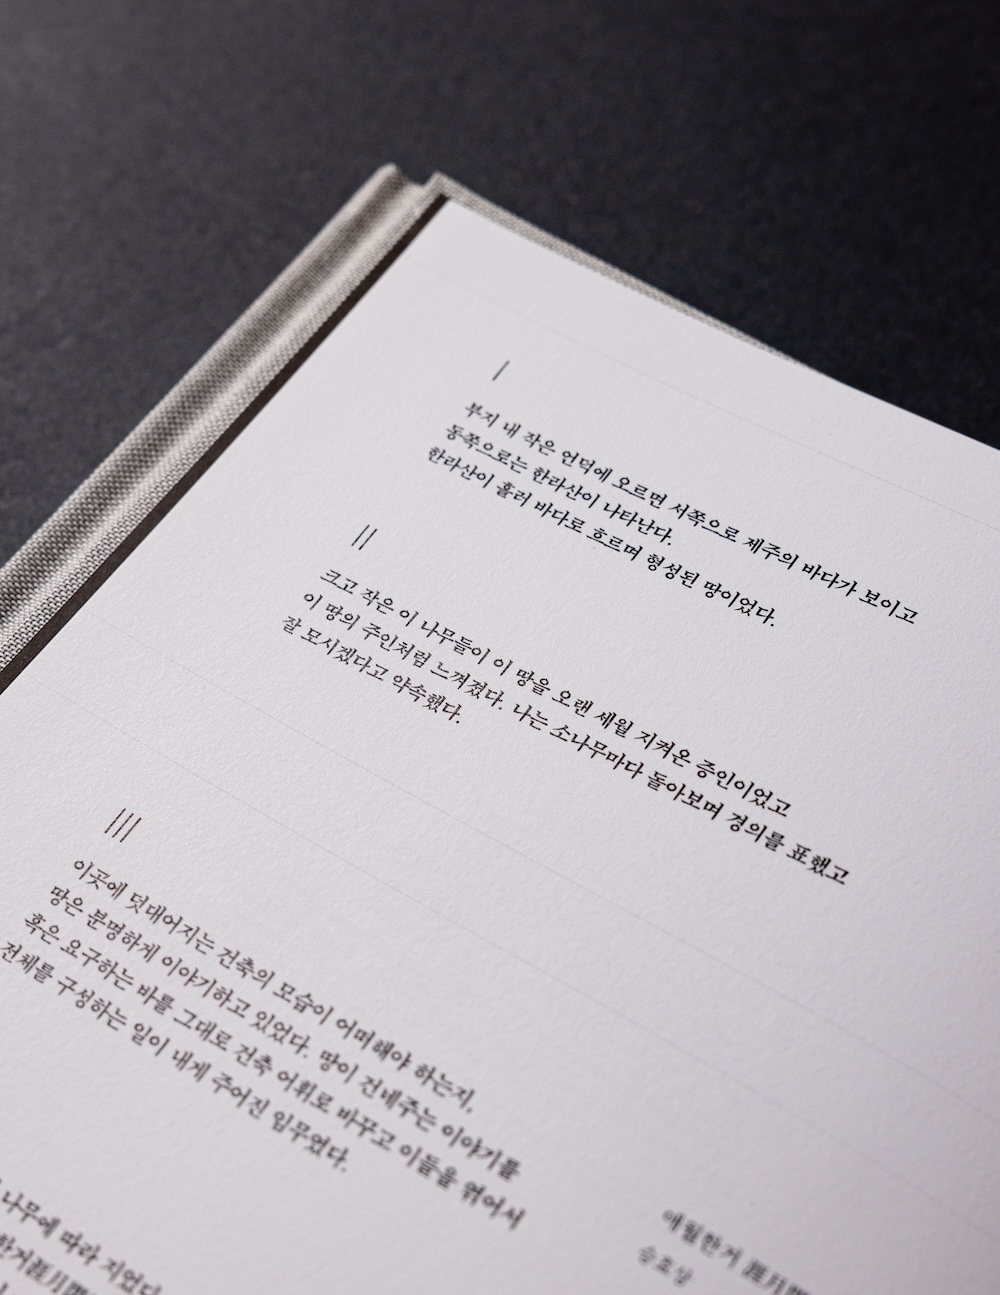 |
부지 내 작은 언덕에 오르면 서쪽으로 제주의 바다가 보이고
동쪽으로는 한라산이 나타난다.
한라산이 흘러 바다로 흐르며 형성된 땅이었다.
||
크고 작은 이 나무들이 이 땅을 오랜 세월 지켜온 증인이었고
이 땅의 주인처럼 느껴졌다. 나는 소나무마다 돌아보며 경의를 표했고
잘 모시겠다고 약속했다.
|||
이곳에 덧대어지는 건축의 모습이 어떠해야 하는지,
땅은 분명하게 이야기하고 있었다. 땅이 건네주는 이야기를
혹은 요구하는 바를 그대로 건축 어휘로 바꾸고 이들을 엮어서
전체를 구성하는 일이 내게 주어진 임무였다.
나무에 따라 지었다
한거涯月閑
애월한거 涯月閑
승효상